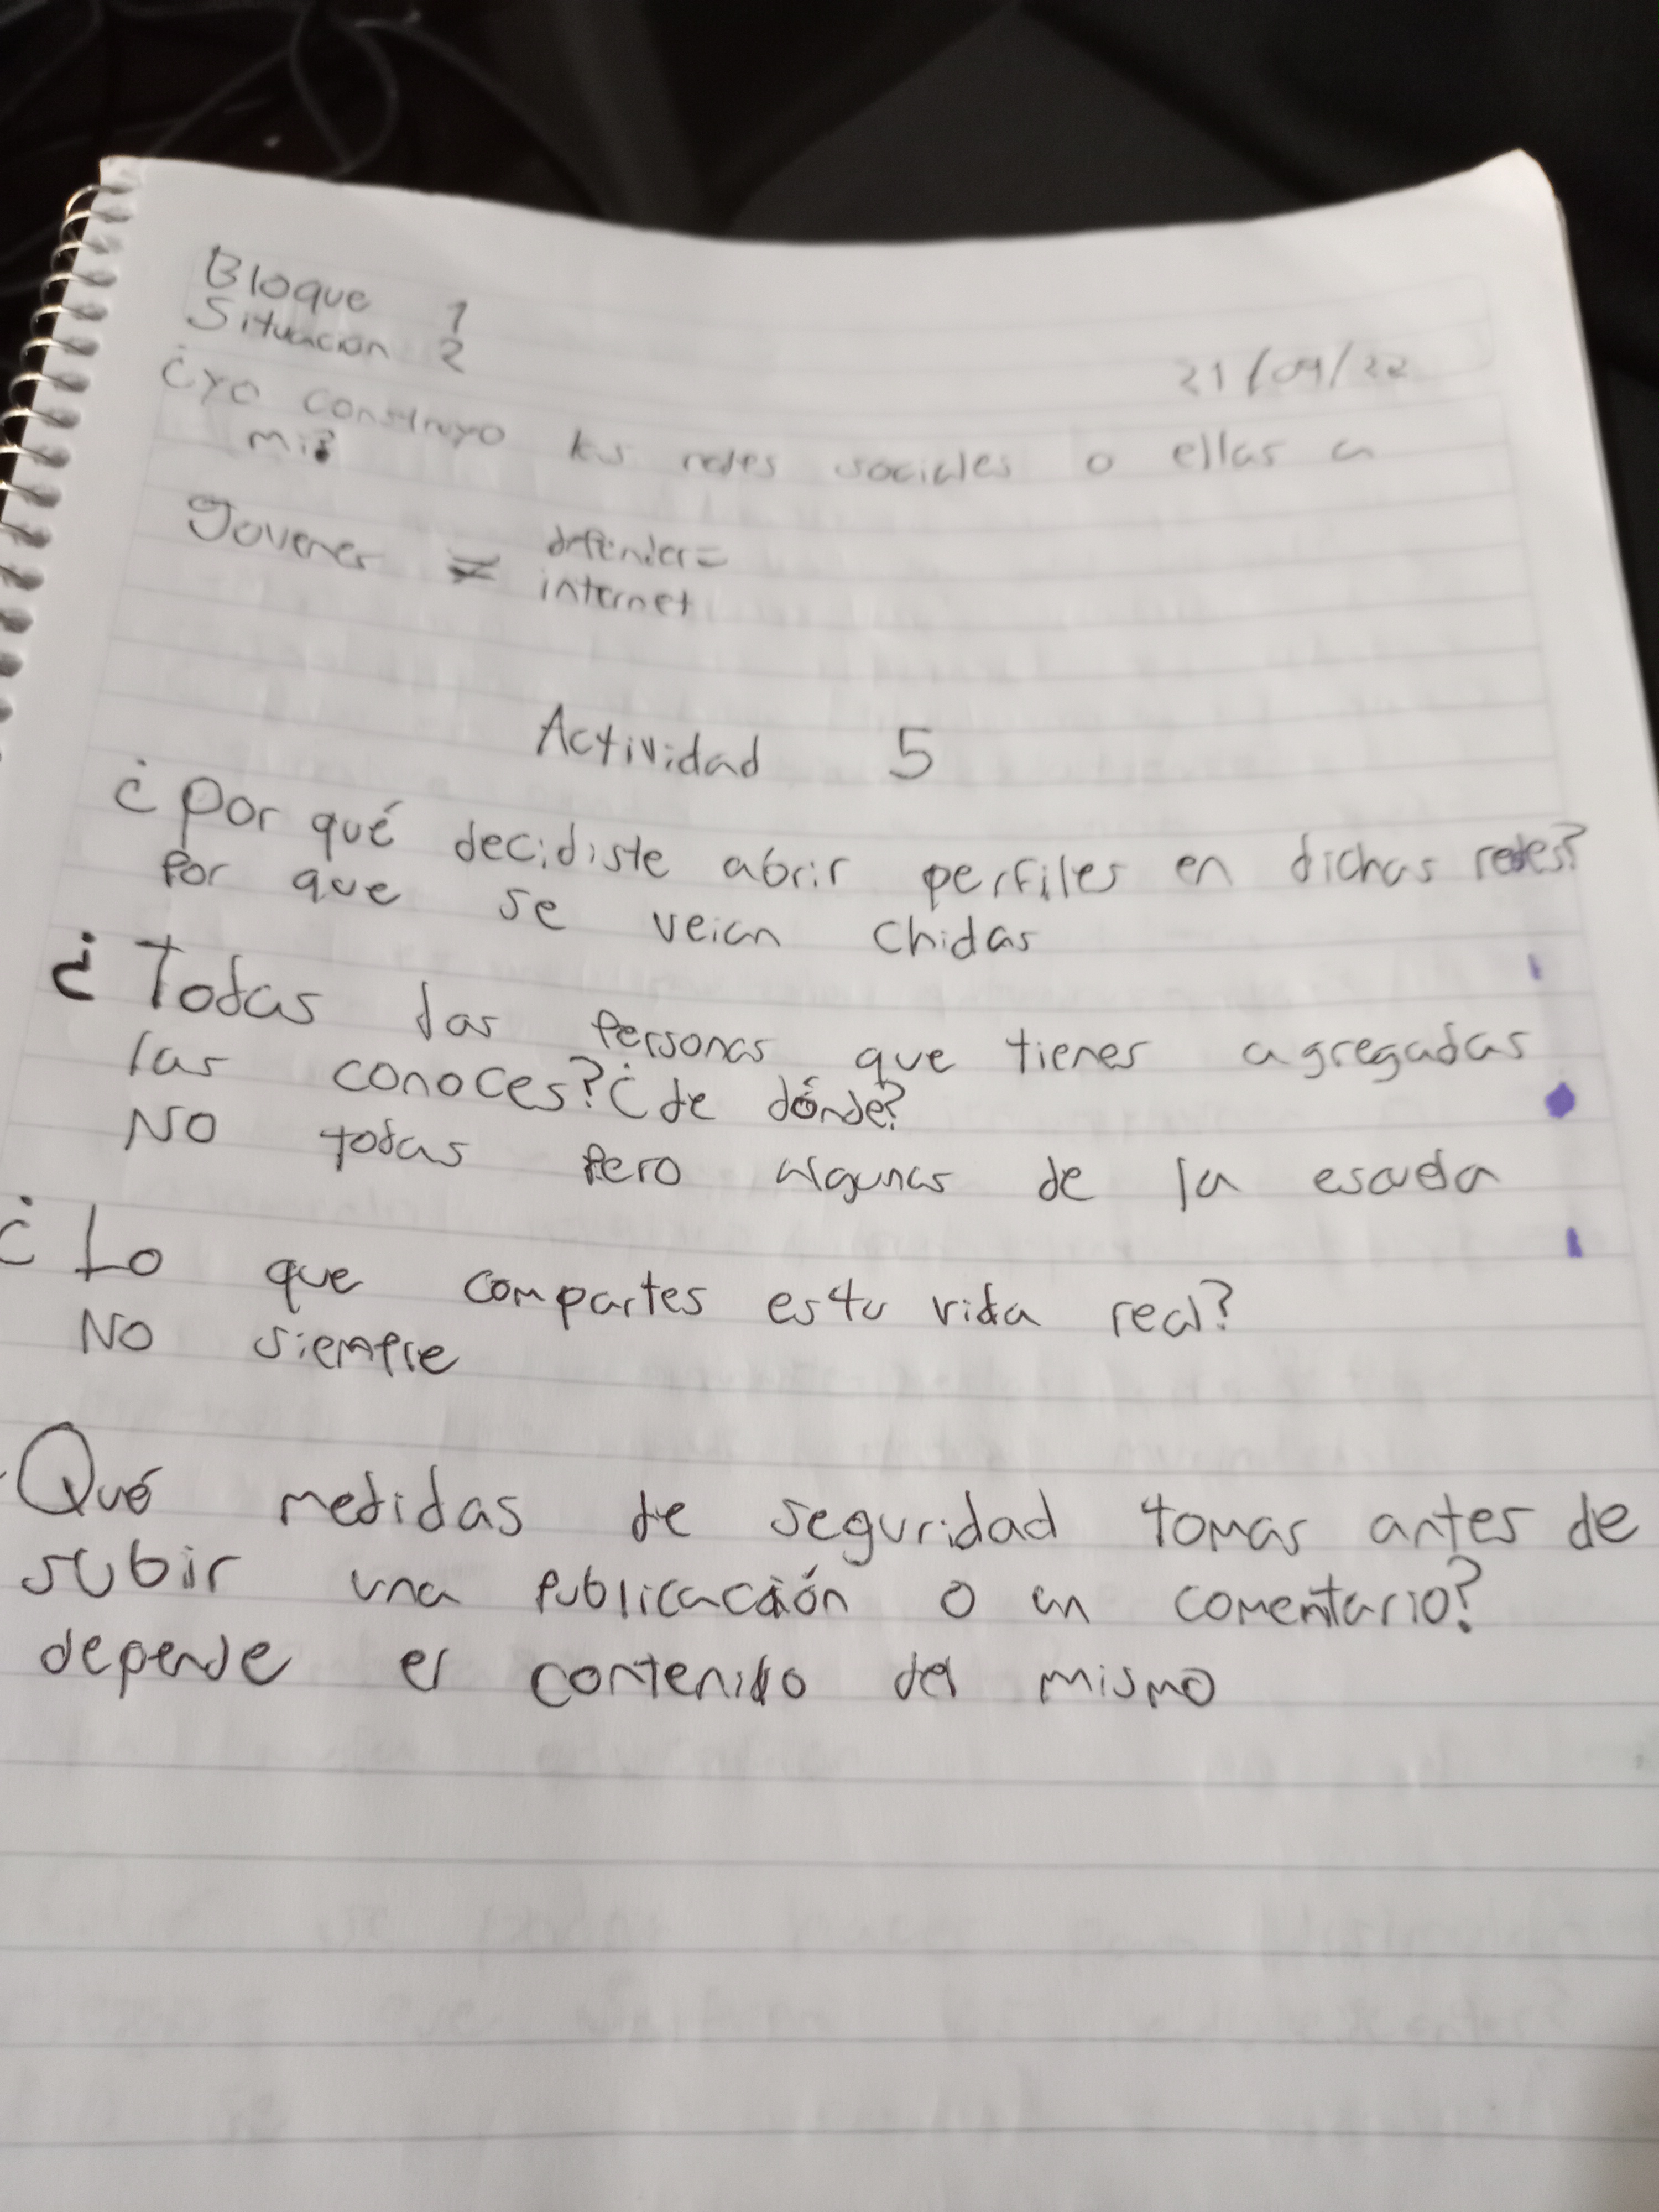 Bloque 1
Situacion 2
21/09/22
¿Yo construyo las redes sociales o ellas a
mi?
Jovenes ≠ defender=
internet
Actividad 5
¿Por qué decidiste abrir perfiles en dichas redes?
Por que se veian chidas
¿Todas las Personas que tienes agregadas
las conoces? ¿de dónde?
NO todas Pero algunas de la escuela
¿Lo que compartes es tu vida real?
NO siempre
Qué medidas de seguridad tomas antes de
subir una Publicación o un comentario?
depende el contenido del mismo